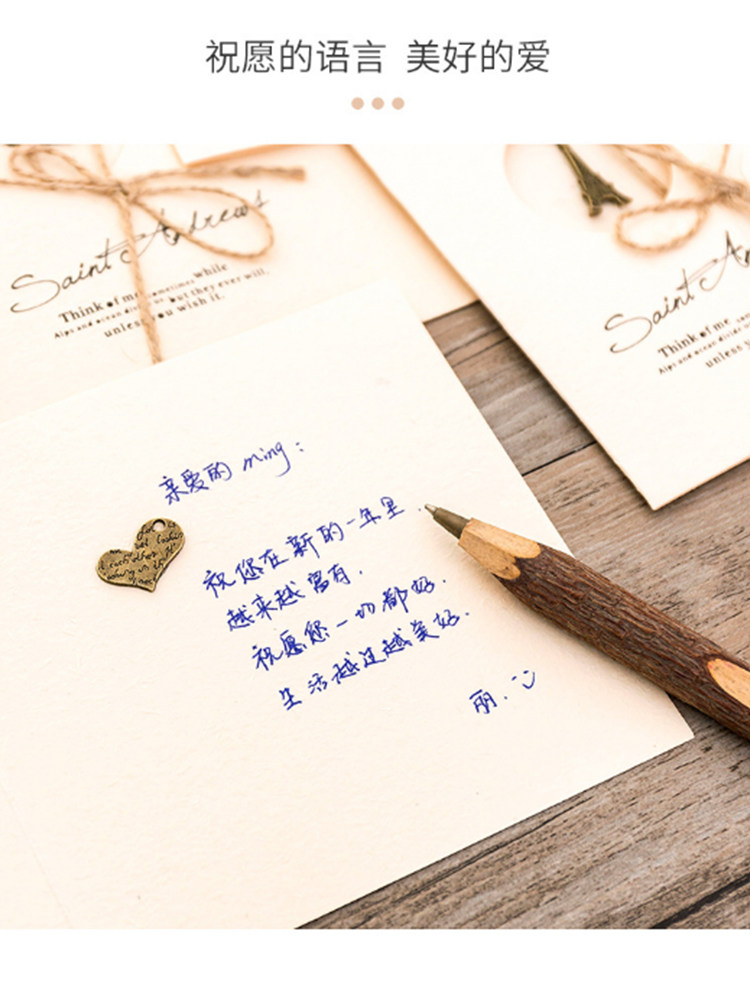 祝愿的语言 美好的爱
Saint Andrews
Think of me sometimes while
Alps and ocean divide us but they ever will,
unless you wish it.
Saint An
Think of me
Alps and ocean divide
unless y
亲爱的 ming:
祝您在新的一年里.
越来越富有.
祝愿您一切都好.
生活越过越美好.
丽.